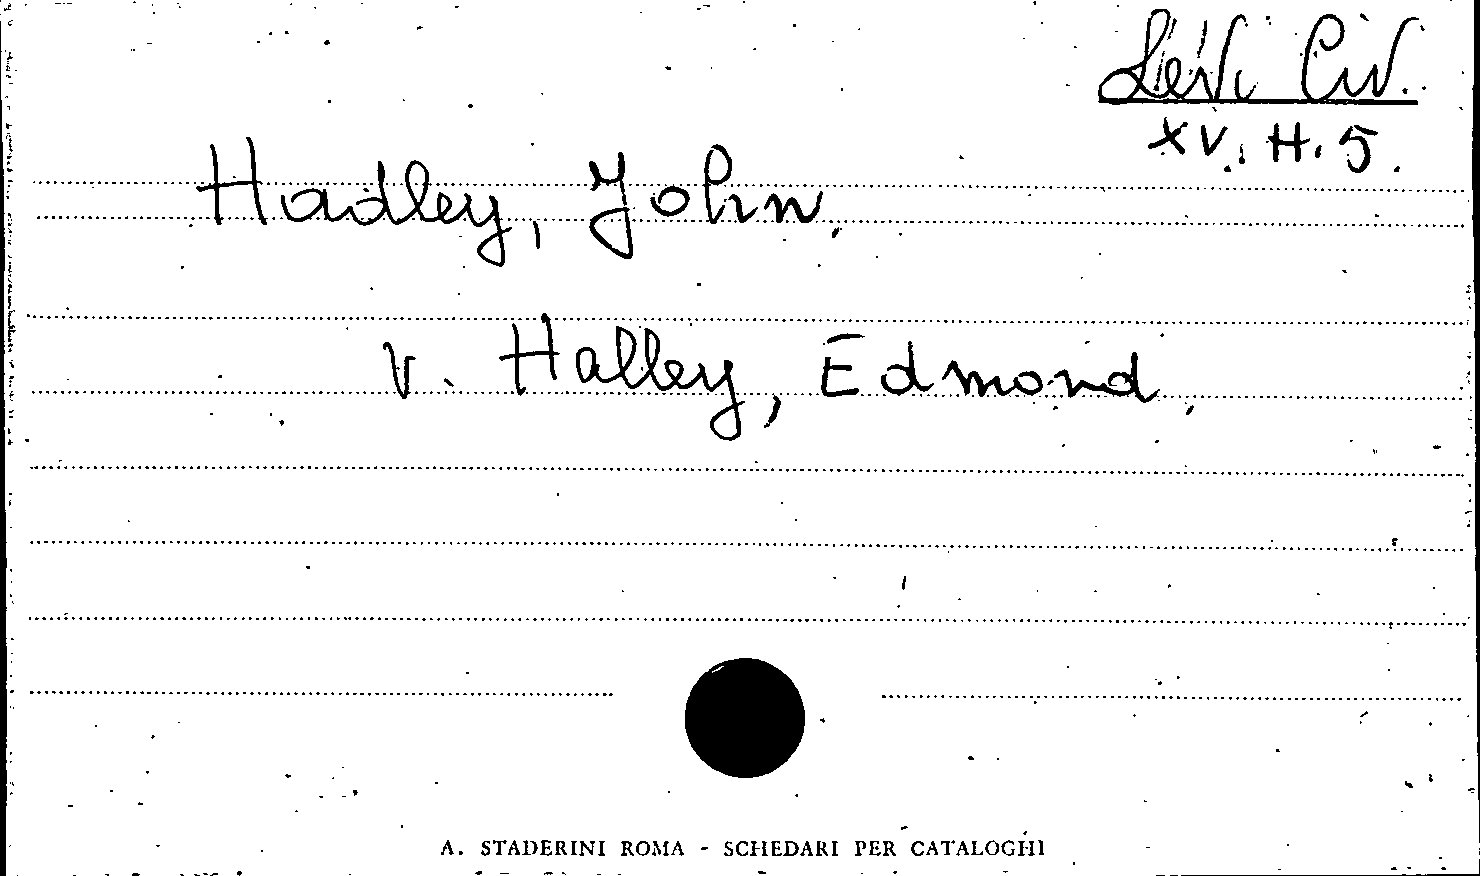 Levi Civ.
XV. H. 5.
Hadley, John.
v. Halley, Edmond.
A. STADERINI ROMA - SCHEDARI PER CATALOGHI